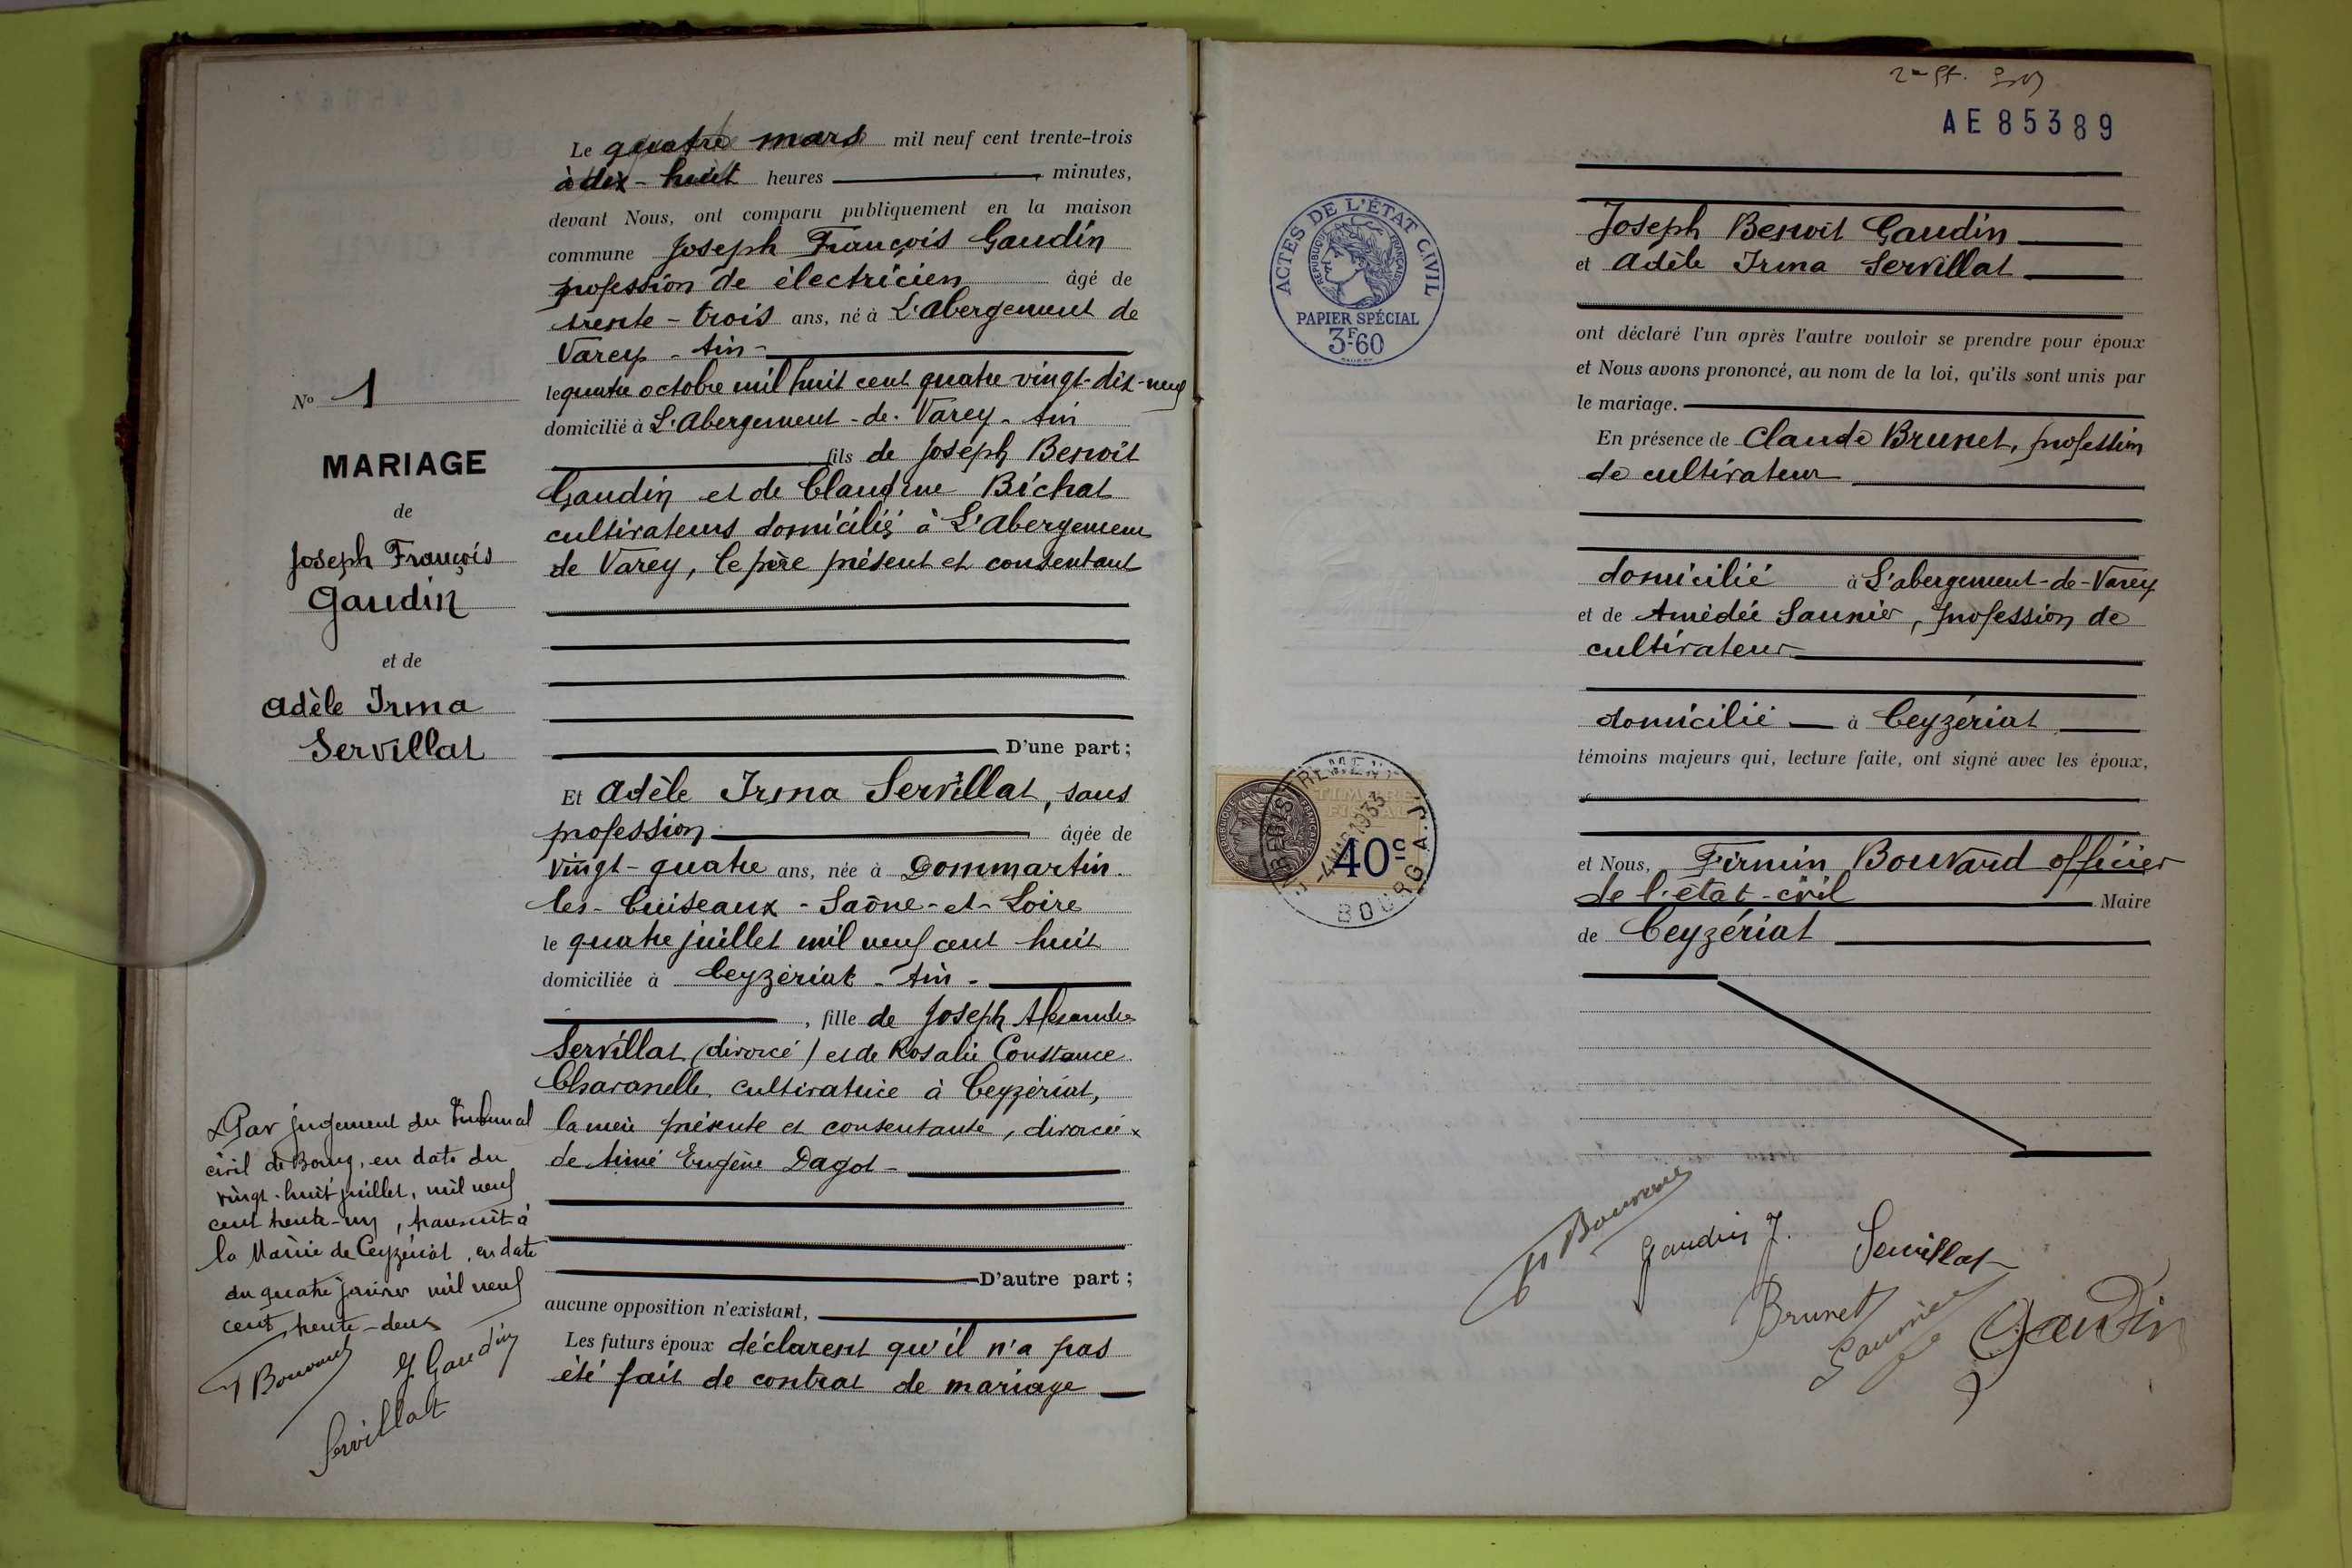 N° 1
MARIAGE
de
Joseph François
Gaudin
et de
Adèle Irma
Servillat
Le quatre mars mil neuf cent trente-trois
à dix-huit heures minutes,
devant Nous, ont comparu publiquement en la maison
commune Joseph François Gaudin
profession de électricien âgé de
trente-trois ans, né à L'Abergement de
Varey - Ain -
le quatre octobre mil huit cent quatre vingt-dix-neuf
domicilié à L'Abergement-de-Varey - Ain
fils de Joseph Benoit
Gaudin et de Claudine Bichat
cultivateurs domiciliés à L'Abergement
de Varey, le père présent et consentant
D'une part;
Et Adèle Irma Servillat, sans
profession âgée de
vingt-quatre ans, née à Dommartin-
les-Cuiseaux - Saône-et-Loire
le quatre juillet mil neuf cent huit
domiciliée à Ceyzériat - Ain -
, fille de Joseph Alexandre
Servillat (divorcé) et de Rosalie Constance
cultivatrice à Ceyzériat,
la mère présente et consentante, divorcée x
de Aimé Eugène Dagot -
D'autre part;
aucune opposition n'existant,
Les futurs époux déclarent qu'il n'a pas
été fait de contrat de mariage
x Par jugement du tribunal
civil de Bourg, en date du
vingt-huit juillet, mil neuf
cent trente-un, transcrit à
la Mairie de Ceyzériat, en date
du quatre janvier mil neuf
cent trente-deux
F Bouvard
J Gaudin
Servillat
AE85389
ACTES DE L'ÉTAT CIVIL
RÉPUBLIQUE FRANÇAISE
PAPIER SPÉCIAL
3F60
Joseph Benoit Gaudin
et Adèle Irma Servillat
ont déclaré l'un après l'autre vouloir se prendre pour époux
et Nous avons prononcé, au nom de la loi, qu'ils sont unis par
le mariage.
En présence de Claude Brunet, profession
de cultivateur
domicilié à L'abergement-de-Varey
et de Amédée Saunier, profession de
cultivateur
domicilié à Ceyzériat
témoins majeurs qui, lecture faite, ont signé avec les époux,
et Nous, Firmin Bouvard officier
de l'état-civil Maire
de Ceyzériat
TIMBRE
FISCAL
40c
1933
BOURG
F Bouvard
Gaudin J.
Servillat
Brunet
Saunier
Gaudin